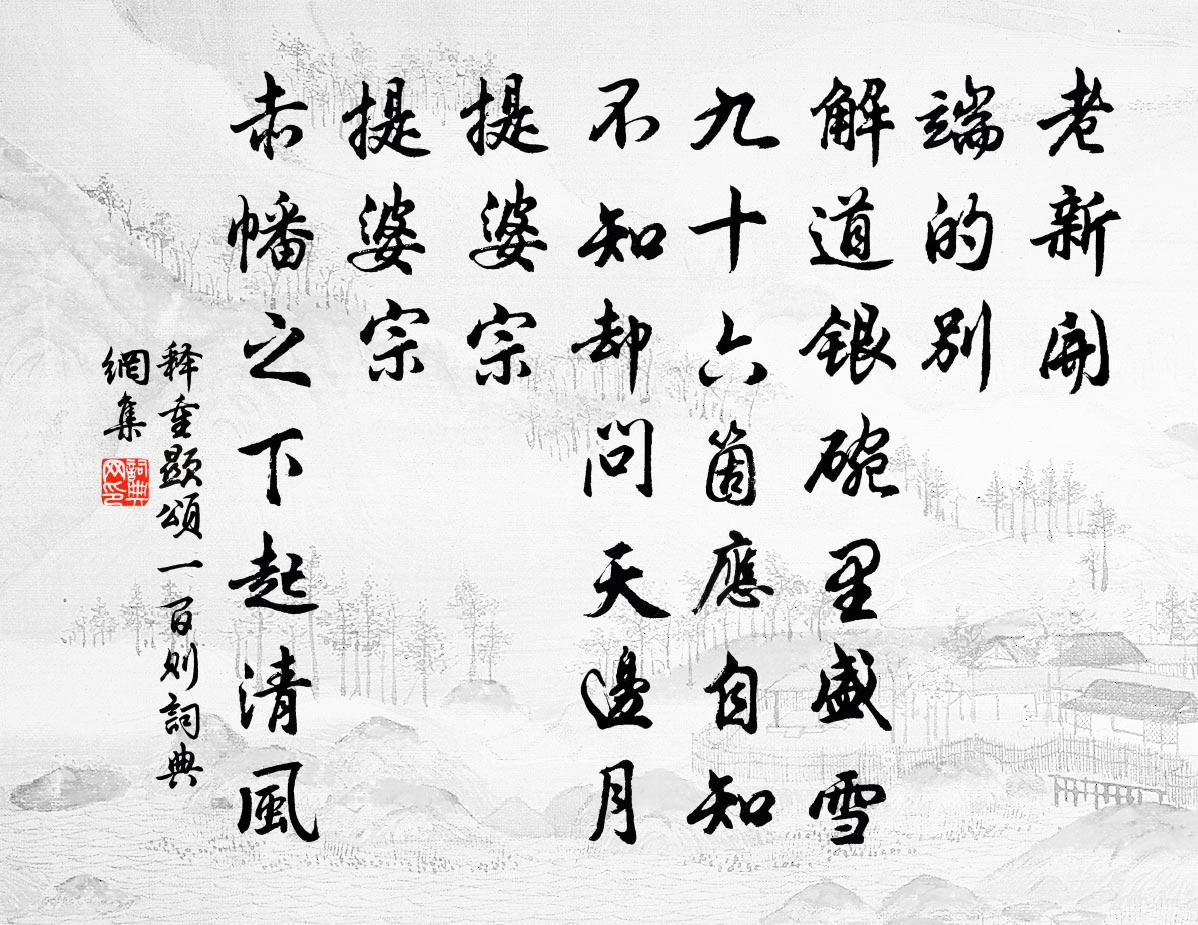 老新開
端的別
解道銀碗里盛雪
九十六箇應自知
不知却問天邊月
提婆宗
提婆宗
赤幡之下起清風
释重顯頌一百则詞典
網集
詞典
网印